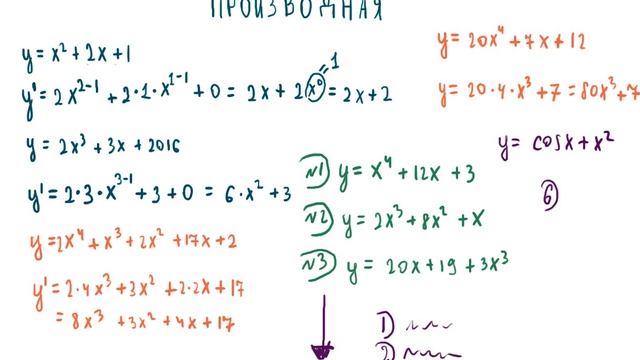 ПРОИЗВОДНАЯ
y = x² + 2x + 1
y' = 2x²⁻¹ + 2·1·x¹⁻¹ + 0 = 2x + 2x⁰ = 2x + 2
=1
y = 2x³ + 3x + 2016
y' = 2·3·x³⁻¹ + 3 + 0 = 6·x² + 3
y = 2x⁴ + x³ + 2x² + 17x + 2
y' = 2·4x³ + 3x² + 2·2x + 17
= 8x³ + 3x² + 4x + 17
y = 20x⁴ + 7x + 12
y = 20·4·x³ + 7 = 80x³ + 7
y = cosx + x²
6
№1 y = x⁴ + 12x + 3
№2 y = 2x³ + 8x² + x
№3 y = 20x + 19 + 3x³
1)
2)